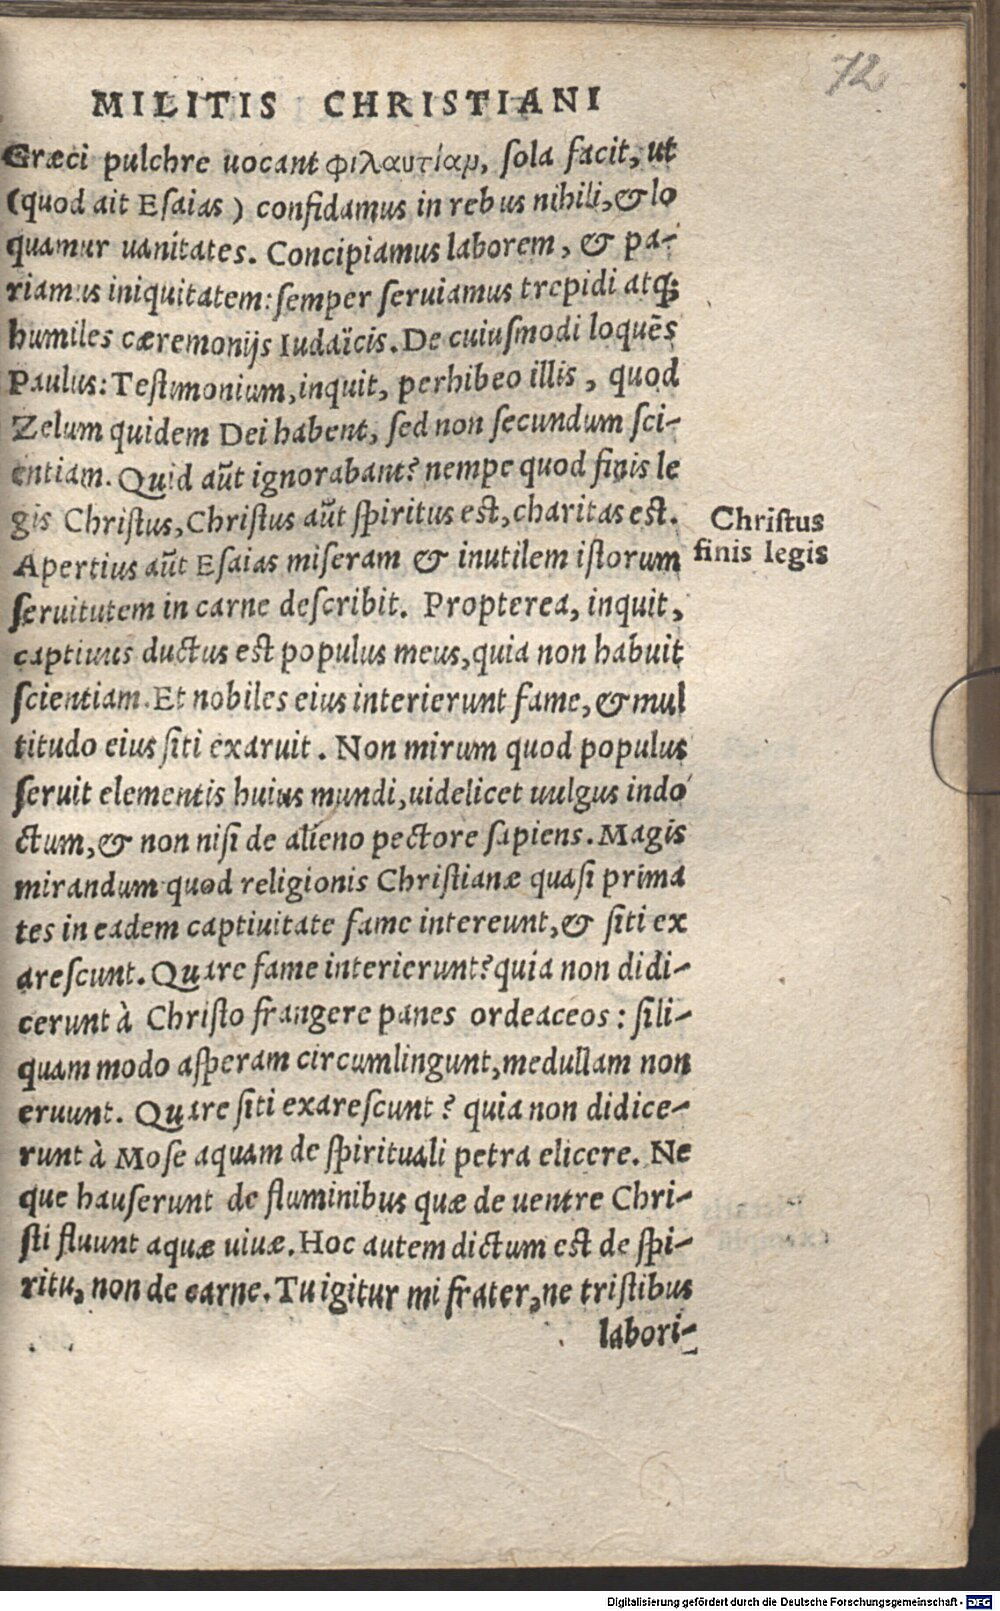 72
MILITIS CHRISTIANI
Græci pulchre uocant φιλαυτίαμ, ſola facit, ut
(quod ait Eſaias) confidamus in rebus nihili, & lo
quamur uanitates. Concipiamus laborem, & pa-
riamus iniquitatem: ſemper ſeruiamus trepidi atq;
humiles cæremonijs Iudaïcis. De cuiuſmodi loquēs
Paulus: Teſtimonium, inquit, perhibeo illis, quod
Zelum quidem Dei habent, ſed non ſecundum ſci-
entiam. Quid aūt ignorabant? nempe quod finis le
gis Chriſtus, Chriſtus aūt ſpiritus eſt, charitas eſt.
Christus
finis legis
Apertius aūt Eſaias miſeram & inutilem iſtorum
ſeruitutem in carne deſcribit. Propterea, inquit,
captiuus ductus eſt populus meus, quia non habuit
ſcientiam. Et nobiles eius interierunt fame, & mul
titudo eius ſiti exaruit. Non mirum quod populus
ſeruit elementis huius mundi, uidelicet uulgus indo
ctum, & non niſi de alieno pectore ſapiens. Magis
mirandum quod religionis Chriſtianæ quaſi prima
tes in eadem captiuitate fame intereunt, & ſiti ex
areſcunt. Quare fame interierunt? quia non didi-
cerunt à Chriſto frangere panes ordeaceos: ſili-
quam modo aſperam circumlingunt, medullam non
eruunt. Quare ſiti exareſcunt? quia non didice-
runt à Moſe aquam de ſpirituali petra elicere. Ne
que hauſerunt de fluminibus quæ de uentre Chri-
ſti fluunt aquæ uiuæ. Hoc autem dictum eſt de ſpi-
ritu, non de carne. Tu igitur mi frater, ne triſtibus
labori-
Digitalisierung gefördert durch die Deutsche Forschungsgemeinschaft - DFG